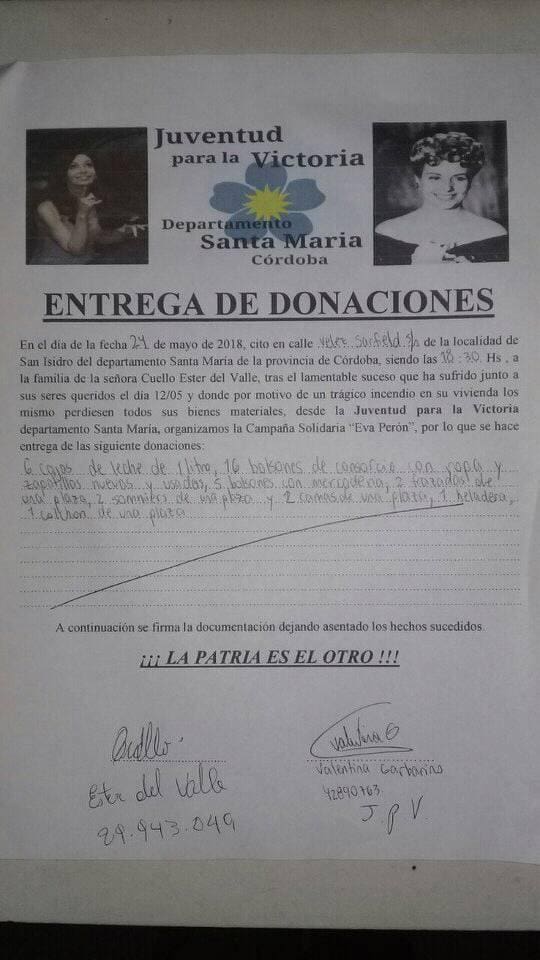 Juventud
para la Victoria
Departamento
Santa Maria
Córdoba
ENTREGA DE DONACIONES
En el día de la fecha 24 de mayo de 2018, cito en calle Velez Sarfield s/n de la localidad de
San Isidro del departamento Santa María de la provincia de Córdoba, siendo las 18:30 Hs , a
la familia de la señora Cuello Ester del Valle, tras el lamentable suceso que ha sufrido junto a
sus seres queridos el día 12/05 y donde por motivo de un trágico incendio en su vivienda los
mismo perdiesen todos sus bienes materiales, desde la Juventud para la Victoria
departamento Santa María, organizamos la Campaña Solidaria “Eva Perón”, por lo que se hace
entrega de las siguiente donaciones:
6 cajas de leche de 1 litro, 16 bolsones de consorcio con ropa y
zapatillas nuevos y usados, 5 bolsones con mercaderia, 2 frazadas de
una plaza, 2 somniers de una plaza y 2 camas de una plaza, 1 heladera,
1 colchon de una plaza
A continuación se firma la documentación dejando asentado los hechos sucedidos.
¡¡¡ LA PATRIA ES EL OTRO !!!
Cuello
Ester del Valle
29.943.049
Valentina G
Valentina Garbarino
42890763
J.P.V.